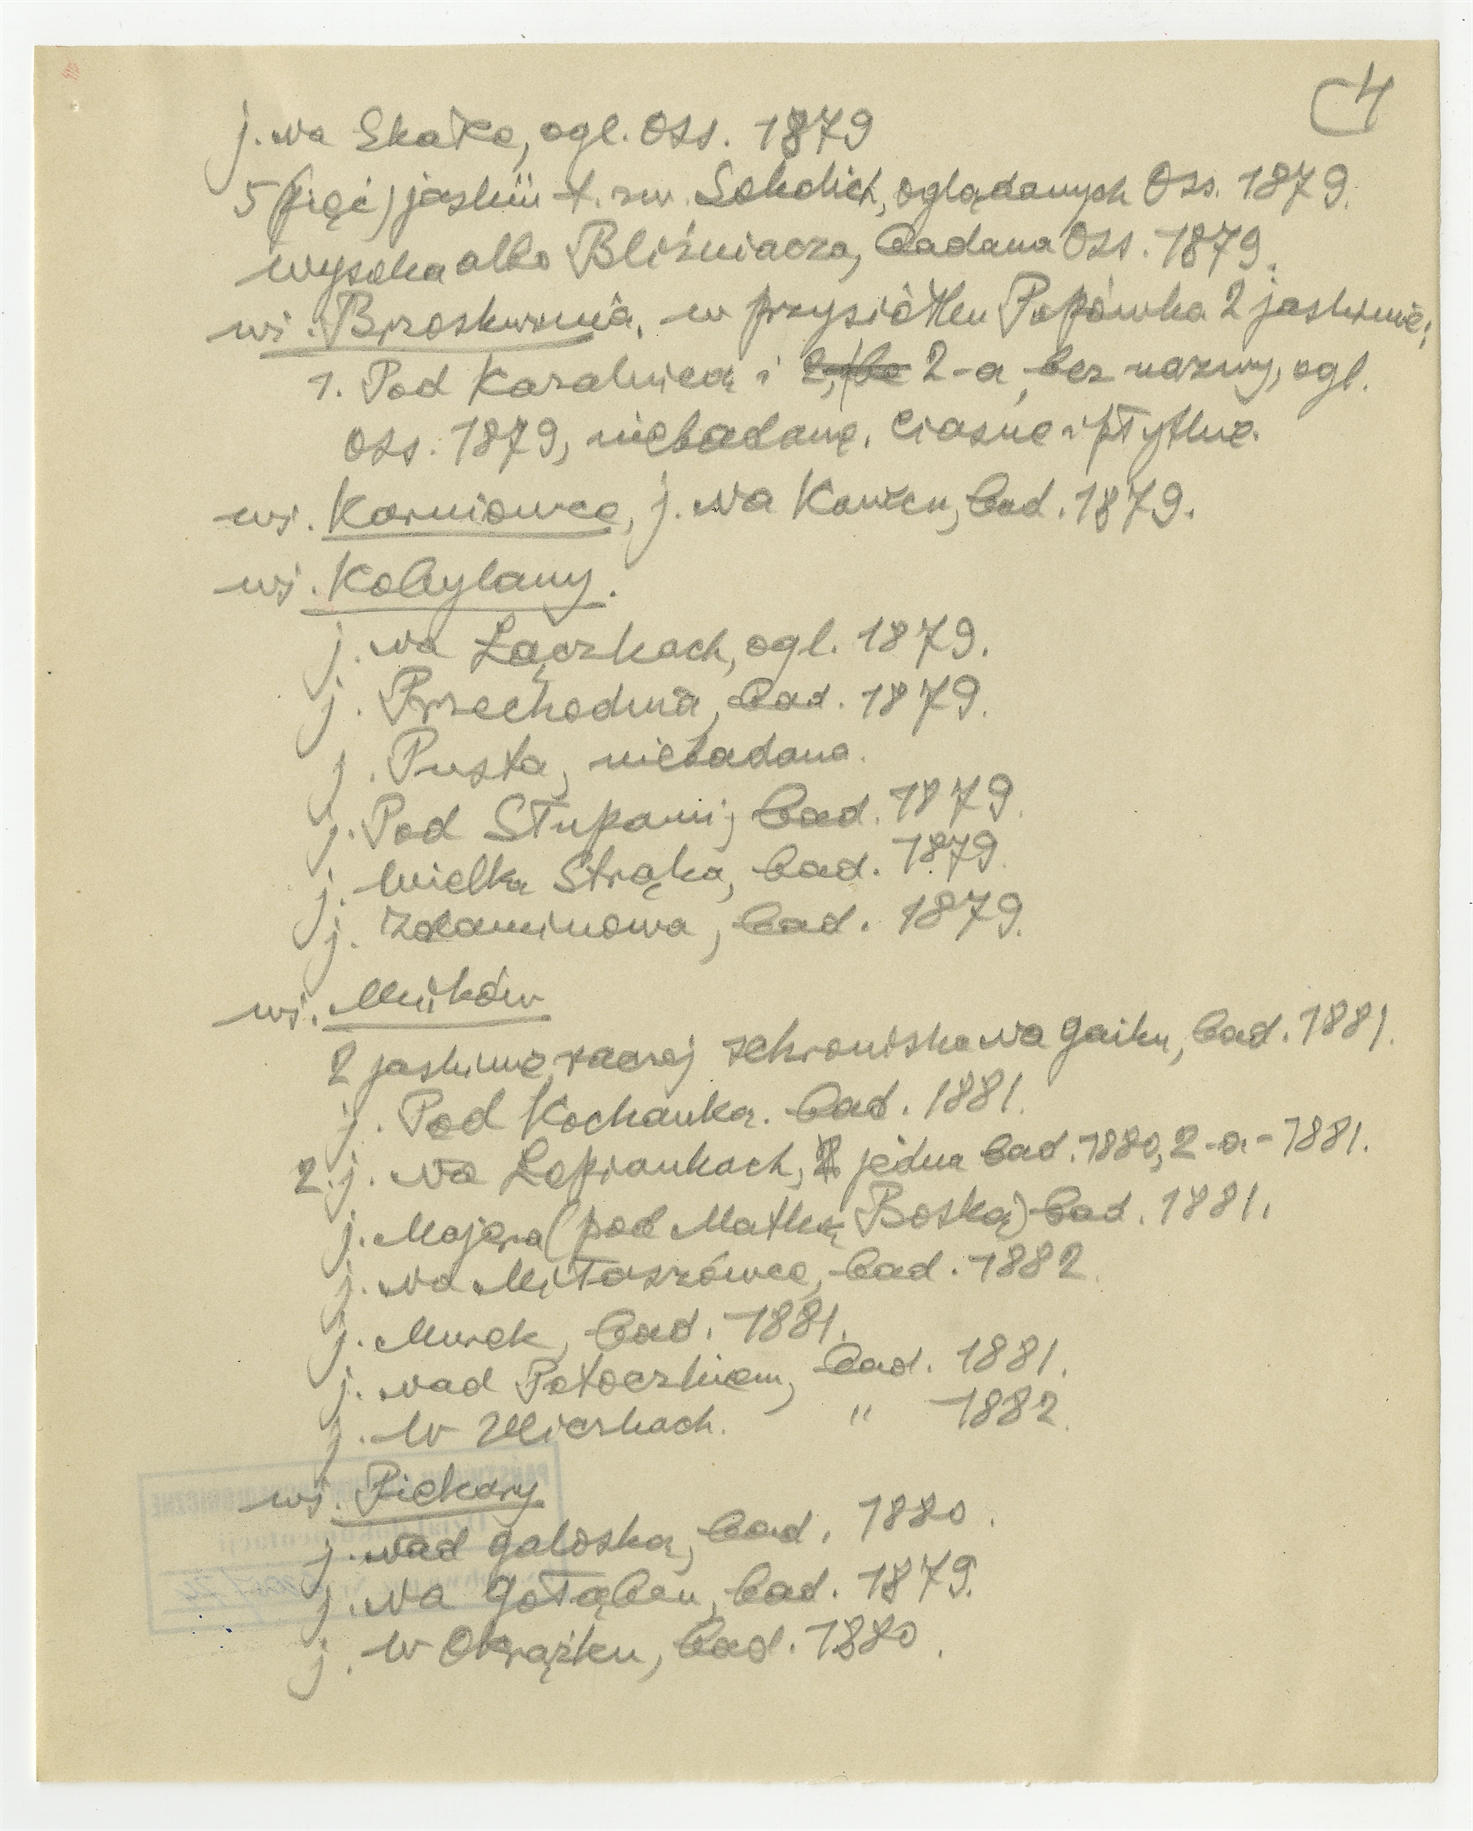 4
j. na Skałce, ogl. Oss. 1879
5 (pięć) jaskiń t. zw. Sokolich, oglądanych Oss. 1879.
Wysoka albo Bliźniacza, badana Oss. 1879.
wś. Brzoskwinia, w przysiółku Popówka 2 jaskinie;
1. Pod Kazalnicą i 2-a bez nazwy, ogl.
Oss. 1879, niebadane. Ciasne i płytkie.
wś. Karniowce, j. Na Kawcu, bad. 1879.
wś. Kobylany.
j. Na Łączkach, ogl. 1879.
j. Przechodnia, bad. 1879.
j. Pusta, niebadana.
j. Pod Słupami, bad. 1879.
j. Wielka Strąka, bad. 1879.
j. bad. 1879.
wś. Mników
2 jaskinie, raczej schroniska Na Gaiku, bad. 1881.
j. Pod Kochanką. bad. 1881.
2 j. Na Łopiankach, jedna bad. 1880, 2-a - 1881.
j. Majera (pod Matką Boską) bad. 1881.
j. Na Miłaszówce, bad. 1882.
j. Murek, bad. 1881.
j. Nad Potoczkiem, bad. 1881.
j. W Uliczkach. " 1882.
wś. Piekary
j. Nad Galoską, bad. 1880.
j. Na Gołąbcu, bad. 1879.
j. W Okrążku, bad. 1880.